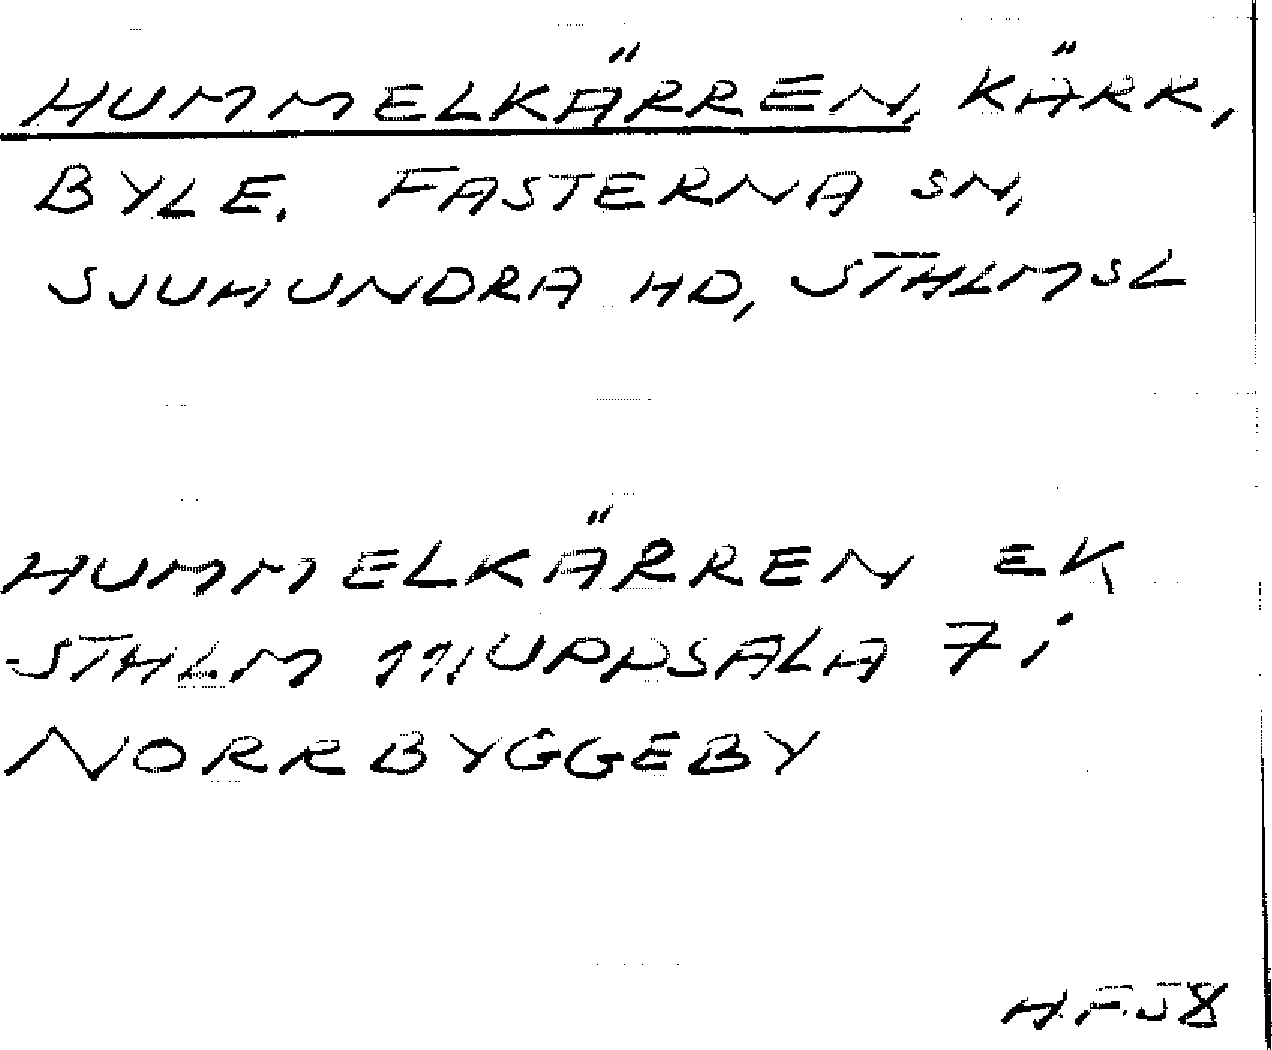 HUMMELKÄRREN, KÄRR,
BYLE. FASTERNA SN,
SJUHUNDRA HD, STHLMSL
HUMMELKÄRREN EK
STHLM 111 UPPSALA 7i
NORRBYGGEBY
H.F.58